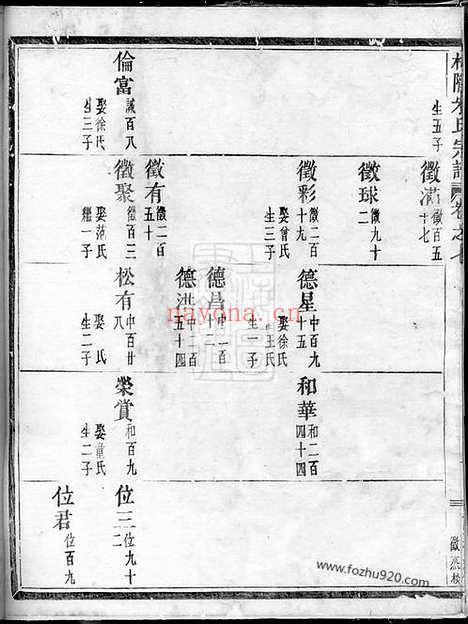 氏宗譜
卷之七
生五子
倫富
諴百八
娶徐氏
生三子
徵滿
徵百五
十七
徵球
徵九十
二
徵彩
徵二百
十九
娶曾氏
生三子
徵有
徵二百
五十
徵聚
徵百三
娶范氏
繼一子
德星
中百九
十五
娶徐氏
王氏
生一子
德昌
中二百
十二
德洪
中二百
五十四
松有
中百廿
八
娶氏
生二子
和華
和二百
四十四
榮賞
和百九
娶童氏
生二子
位三
位九十
二
位君
位百九
nayona.cn
www.fozhu920.com